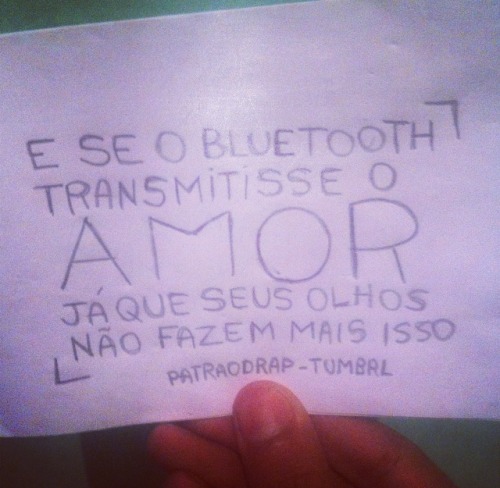 E SE O BLUETOOTH
TRANSMITISSE O
AMOR
JÁ QUE SEUS OLHOS
NÃO FAZEM MAIS ISSO
PATRAODRAP-TUMBRL